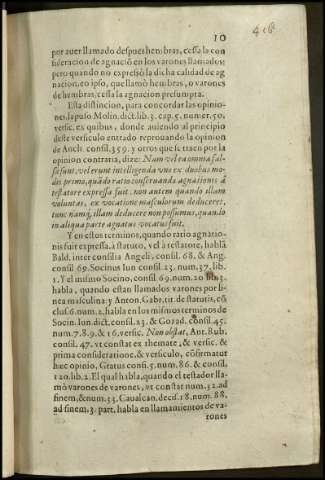 10
por auer llamado despues hembras, cessa la con
sideracion de agnaciõ en los varones llamados:
pero quando no expressò la dicha calidad de ag
nacion, eo ipso, que llamò hembras, o varones
de hembras, cessa la agnacion presumpta.
Esta distincion, para concordar las opinio-
nes, la puso Molin. dict. lib. 3. cap. 5. numer. 50.
versic. ex quibus, donde auiendo al principio
deste versiculo entrado reprouando la opinion
de Anch. consil. 359. y otros que se traen por la
opinion contraria, dize: Nam vel ea omnia fal-
sa sunt, vel erunt intelligenda vno ex duobus mo-
dis primo, quãdo ratio conseruanda agnationis à
testatore expressa fuit. non autem quando illam
voluntas, ex vocatione masculorum deduceret,
tunc namq; illam deducere non possumus, quando
in aliqua parte agnatus vocatus fuit.
Y en estos terminos, quando ratio agnatio-
nis fuit expressa. à statuto, vel à testatore, hablã
Bald. inter consilia Angeli, consil. 68. & Ang.
consil 69. Socinus Iun consil. 23. num. 37. lib.
1. Y el mismo Socino, consil 69. num. 20. lib. 3.
habla, quando estan llamados varones por li-
nea masculina: y Anton. Gabr. tit. de statutis, cõ
clus 6. num. 2. habla en los mismos terminos de
Socin. Iun dict. consil. 23. & Gozad. consil. 45.
num. 7. 8. 9. & 16. versic. Non obstat, Ant. Rub.
consil. 47. vt constat ex themate, & versic. &
prima consideratione, & versiculo, cõfirmatur
hæc opinio, Gratus consil 5. num. 86. & consil.
120. lib. 2. El qual habla, quando el testador lla-
mò varones de varones, vt constat num. 32. ad
finem, & num. 33. Caualcan. decis. 18. num. 88.
ad finem, 3. part. habla en llamamientos de va-
rones